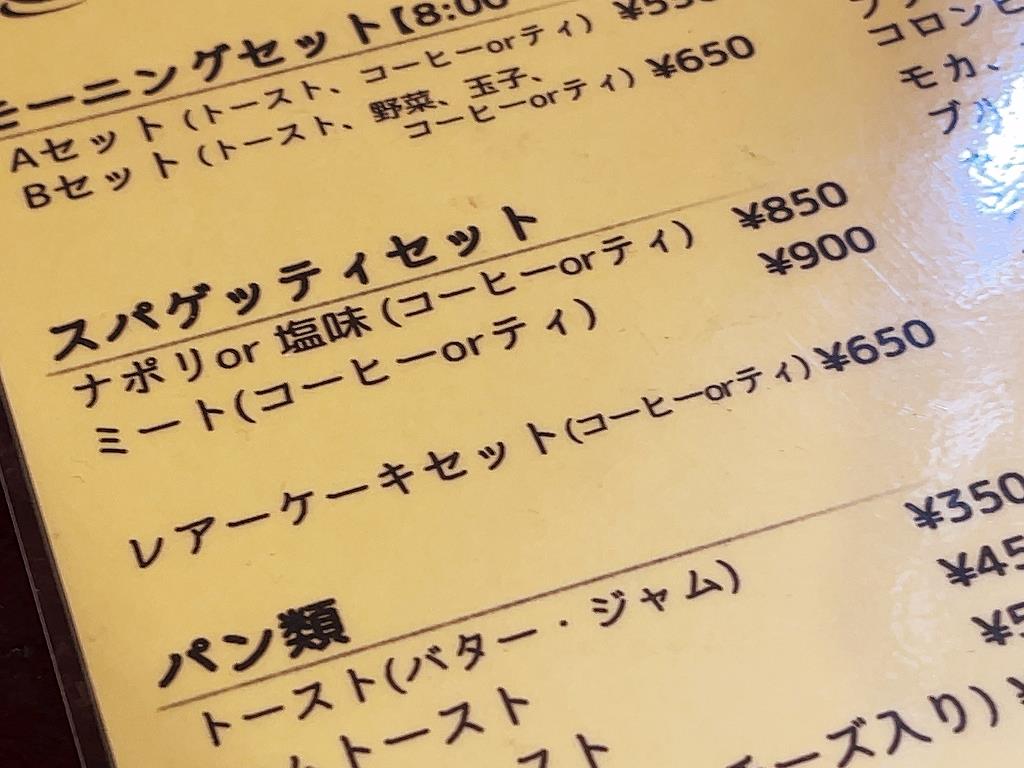 モーニングセット【8:00
Aセット(トースト、コーヒーorティ)
Bセット(トースト、野菜、玉子、 ¥650
コーヒーorティ)
スパゲッティセット
ナポリor 塩味(コーヒーorティ) ¥850
ミート(コーヒーorティ) ¥900
レアーケーキセット(コーヒーorティ)¥650
パン類
トースト(バター・ジャム) ¥350
トースト
スト
ーズ入り)
コロンビ
モカ、